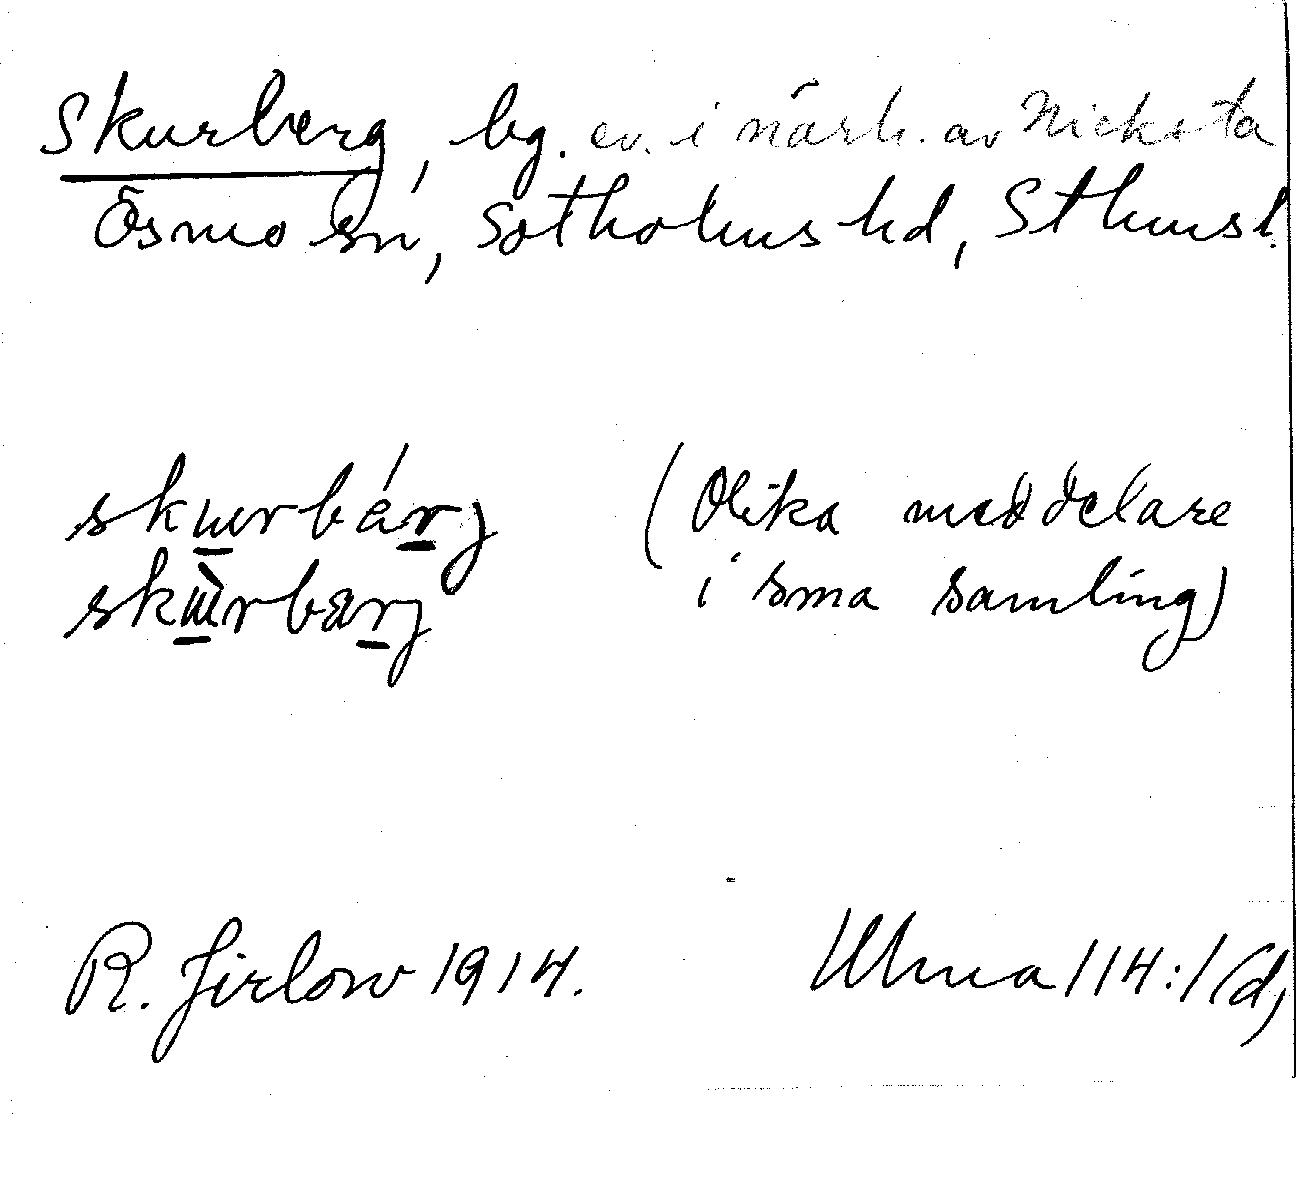 Skurberg, bg. ev. i närh. av Nicksta
Ösmo sn, Sotholms hd, Sthmsl.
skɯrbárj (Olika meddelare
skɯ̀rbarj i sma samling)
R. Jirlow 1914. Ulma 114:1(d)